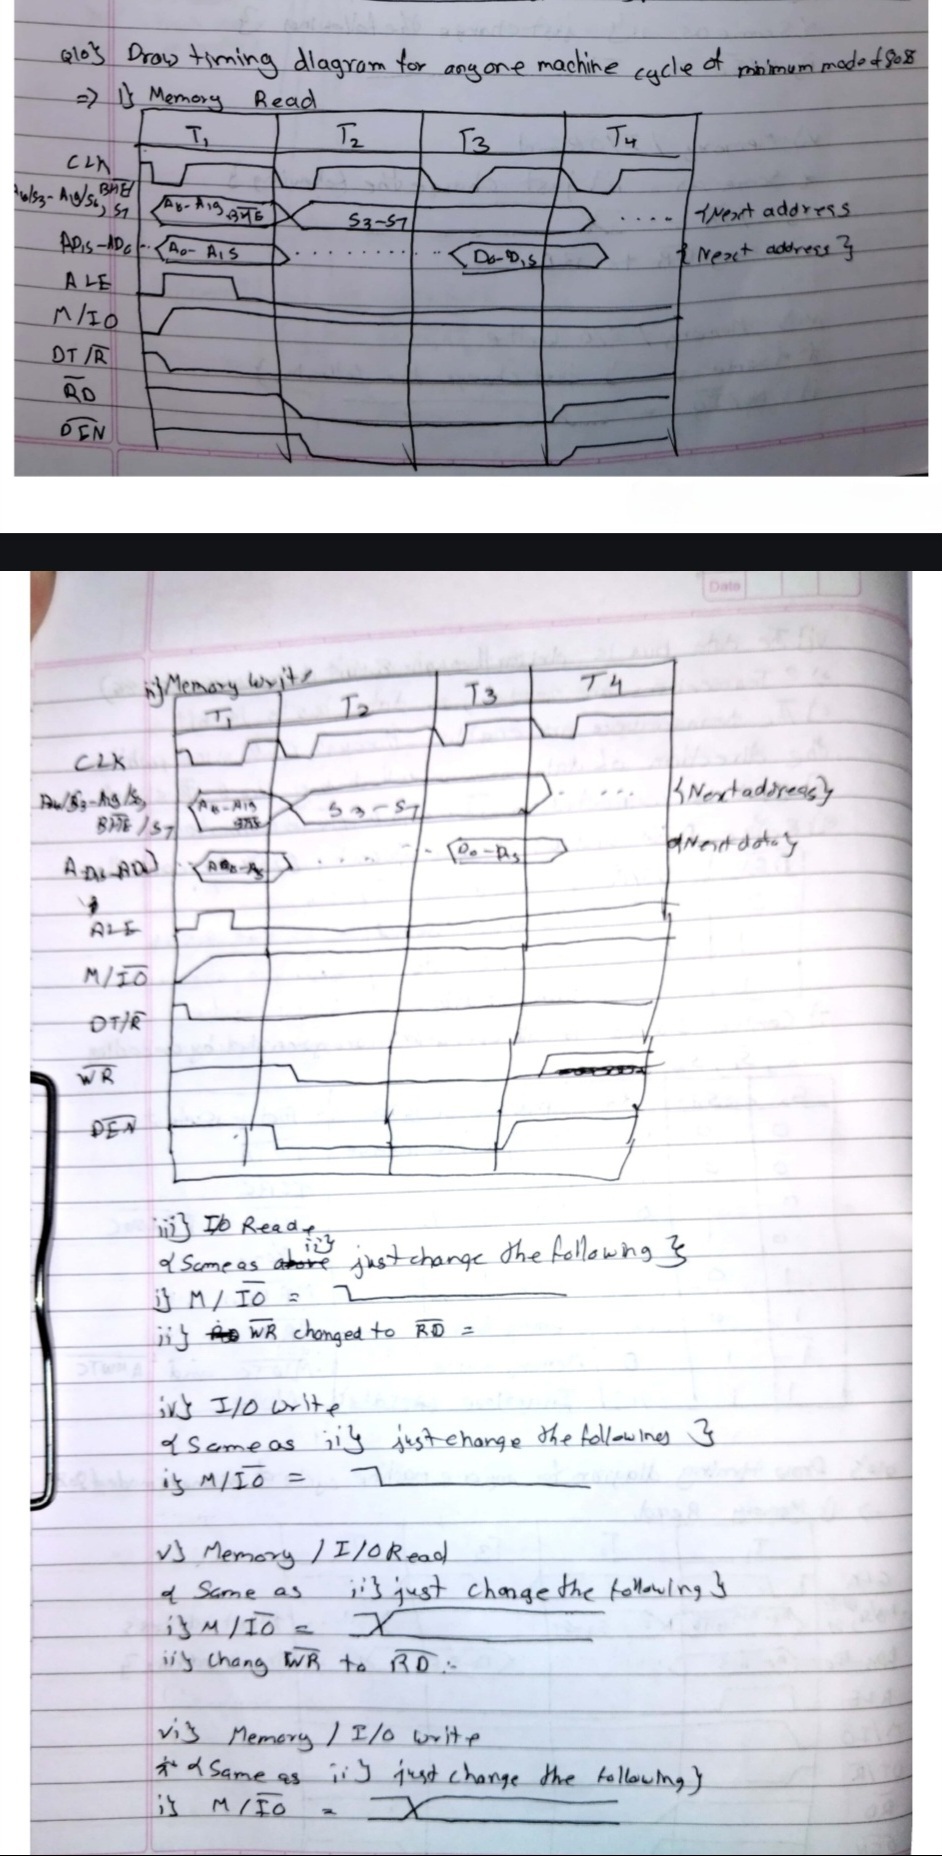 Q10} Draw timing diagram for any one machine cycle of minimum mode of 808
=> 1} Memory Read
T1 T2 T3 T4
CLK
A16/S3-A19/S6, BHE/S7 A16-A19 BHE S3-S7 .... {Next address
AD15-AD0 A0-A15 D0-D15 {Next address}
ALE
M/IO
DT/R̅
R̅D̅
D̅E̅N̅
ii} Memory Write
T1 T2 T3 T4
CLK
A16/S3-A19/S6 A16-A19 S3-S7 ... {Next address}
B̅H̅E̅/S7 B̅H̅E̅
D0-D15 {Next data}
ALE
M/I̅O̅
DT/R̅
W̅R̅
D̅E̅N̅
iii} I/O Read
{Same as ii} just change the following}
i} M/I̅O̅ =
ii} W̅R̅ changed to R̅D̅ =
iv} I/O write
{Same as ii} just change the following }
i} M/I̅O̅ =
v} Memory / I/O Read
{ Same as ii} just change the following}
i} M/I̅O̅ =
ii} Chang W̅R̅ to R̅D̅ :-
vi} Memory / I/O write
{Same as ii} just change the following}
i} M/I̅O̅ =
Date